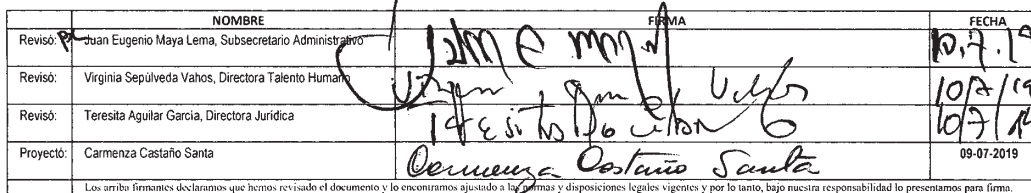 NOMBRE FIRMA FECHA
Revisó: Juan Eugenio Maya Lema, Subsecretario Administrativo 10.7.19
Revisó: Virginia Sepúlveda Vahos, Directora Talento Humano 10/7/19
Revisó: Teresita Aguilar García, Directora Jurídica 10/7/19
Proyectó: Carmenza Castaño Santa Carmenza Castaño Santa 09-07-2019
Los arriba firmantes declaramos que hemos revisado el documento y lo encontramos ajustado a las normas y disposiciones legales vigentes y por lo tanto, bajo nuestra responsabilidad lo presentamos para firma.